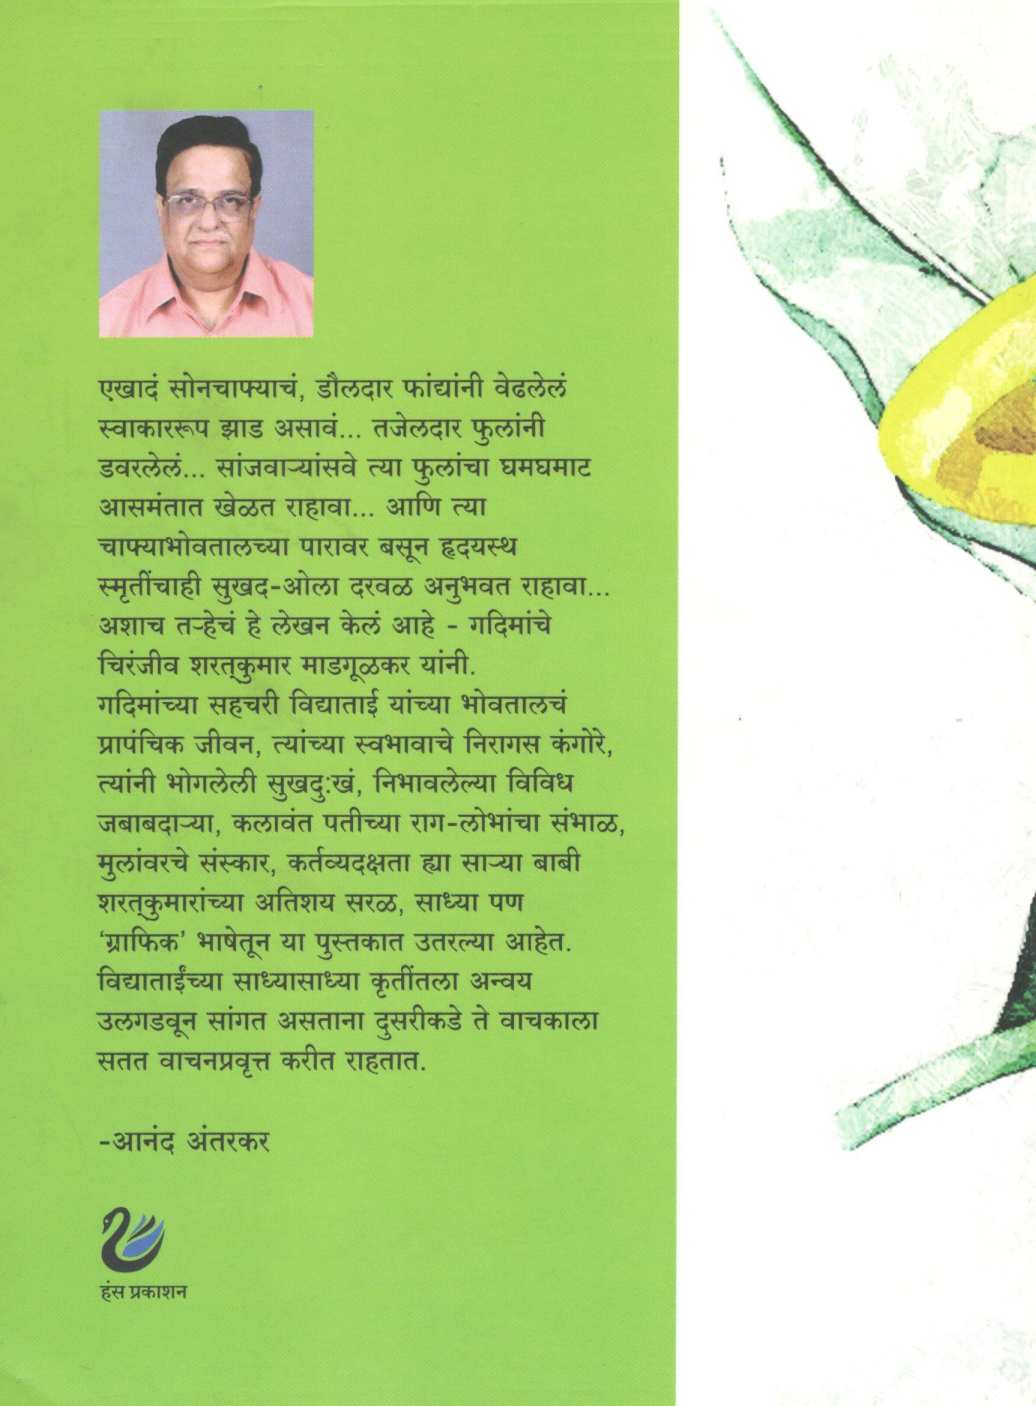 एखादं सोनचाफ्याचं, डौलदार फांद्यांनी वेढलेलं
स्वाकाररूप झाड असावं... तजेलदार फुलांनी
डवरलेलं... सांजवाऱ्यांसवे त्या फुलांचा घमघमाट
आसमंतात खेळत राहावा... आणि त्या
चाफ्याभोवतालच्या पारावर बसून हृदयस्थ
स्मृतींचाही सुखद-ओला दरवळ अनुभवत राहावा...
अशाच तऱ्हेचं हे लेखन केलं आहे - गदिमांचे
चिरंजीव शरत्‌कुमार माडगूळकर यांनी.
गदिमांच्या सहचरी विद्याताई यांच्या भोवतालचं
प्रापंचिक जीवन, त्यांच्या स्वभावाचे निरागस कंगोरे,
त्यांनी भोगलेली सुखदु:खं, निभावलेल्या विविध
जबाबदाऱ्या, कलावंत पतीच्या राग-लोभांचा संभाळ,
मुलांवरचे संस्कार, कर्तव्यदक्षता ह्या साऱ्या बाबी
शरत्‌कुमारांच्या अतिशय सरळ, साध्या पण
'ग्राफिक' भाषेतून या पुस्तकात उतरल्या आहेत.
विद्याताईंच्या साध्यासाध्या कृतींतला अन्वय
उलगडवून सांगत असताना दुसरीकडे ते वाचकाला
सतत वाचनप्रवृत्त करीत राहतात.
-आनंद अंतरकर
हंस प्रकाशन